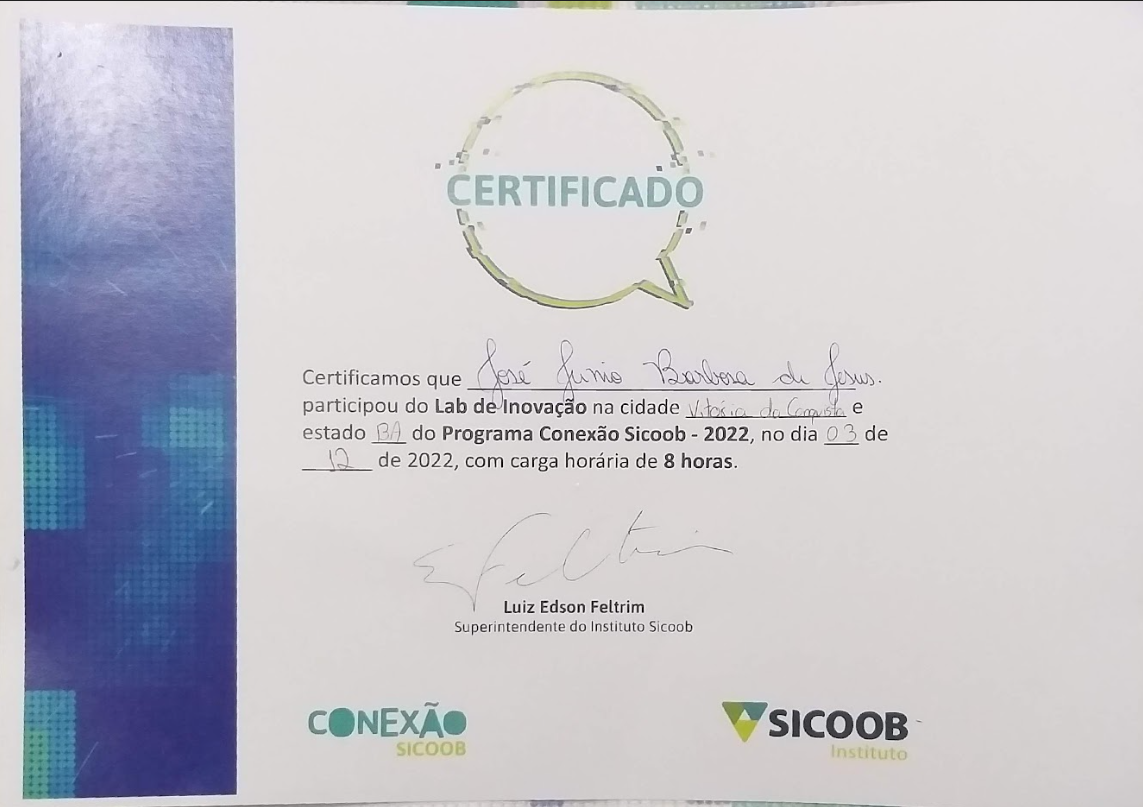 CERTIFICADO
Certificamos que José Junio Barbosa de Jesus.
participou do Lab de Inovação na cidade Vitória da Conquista e
estado BA do Programa Conexão Sicoob - 2022, no dia 03 de
12 de 2022, com carga horária de 8 horas.
E Feltrim
Luiz Edson Feltrim
Superintendente do Instituto Sicoob
CONEXÃO
SICOOB
SICOOB
Instituto